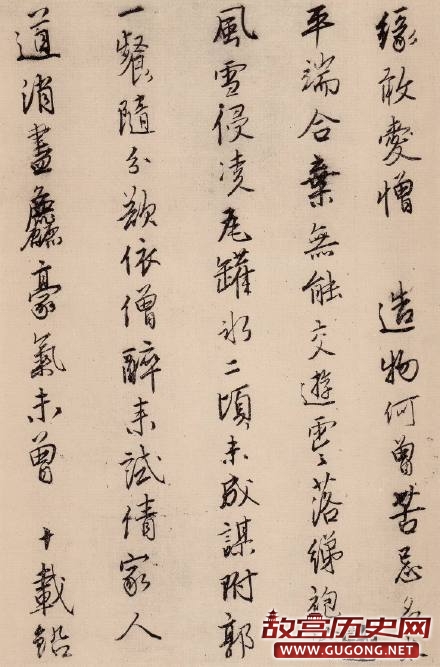 緣敢愛憎 造物何曾苦忌名
平端合棄無能交遊零落綈袍
風雪侵凌瓦罐冰二頃未成謀附郭
一餐隨分欲依僧醉來試倩家人
道消盡麤豪氣未曾 十載鉛
故宫历史网
WWW.GUGONG.NET